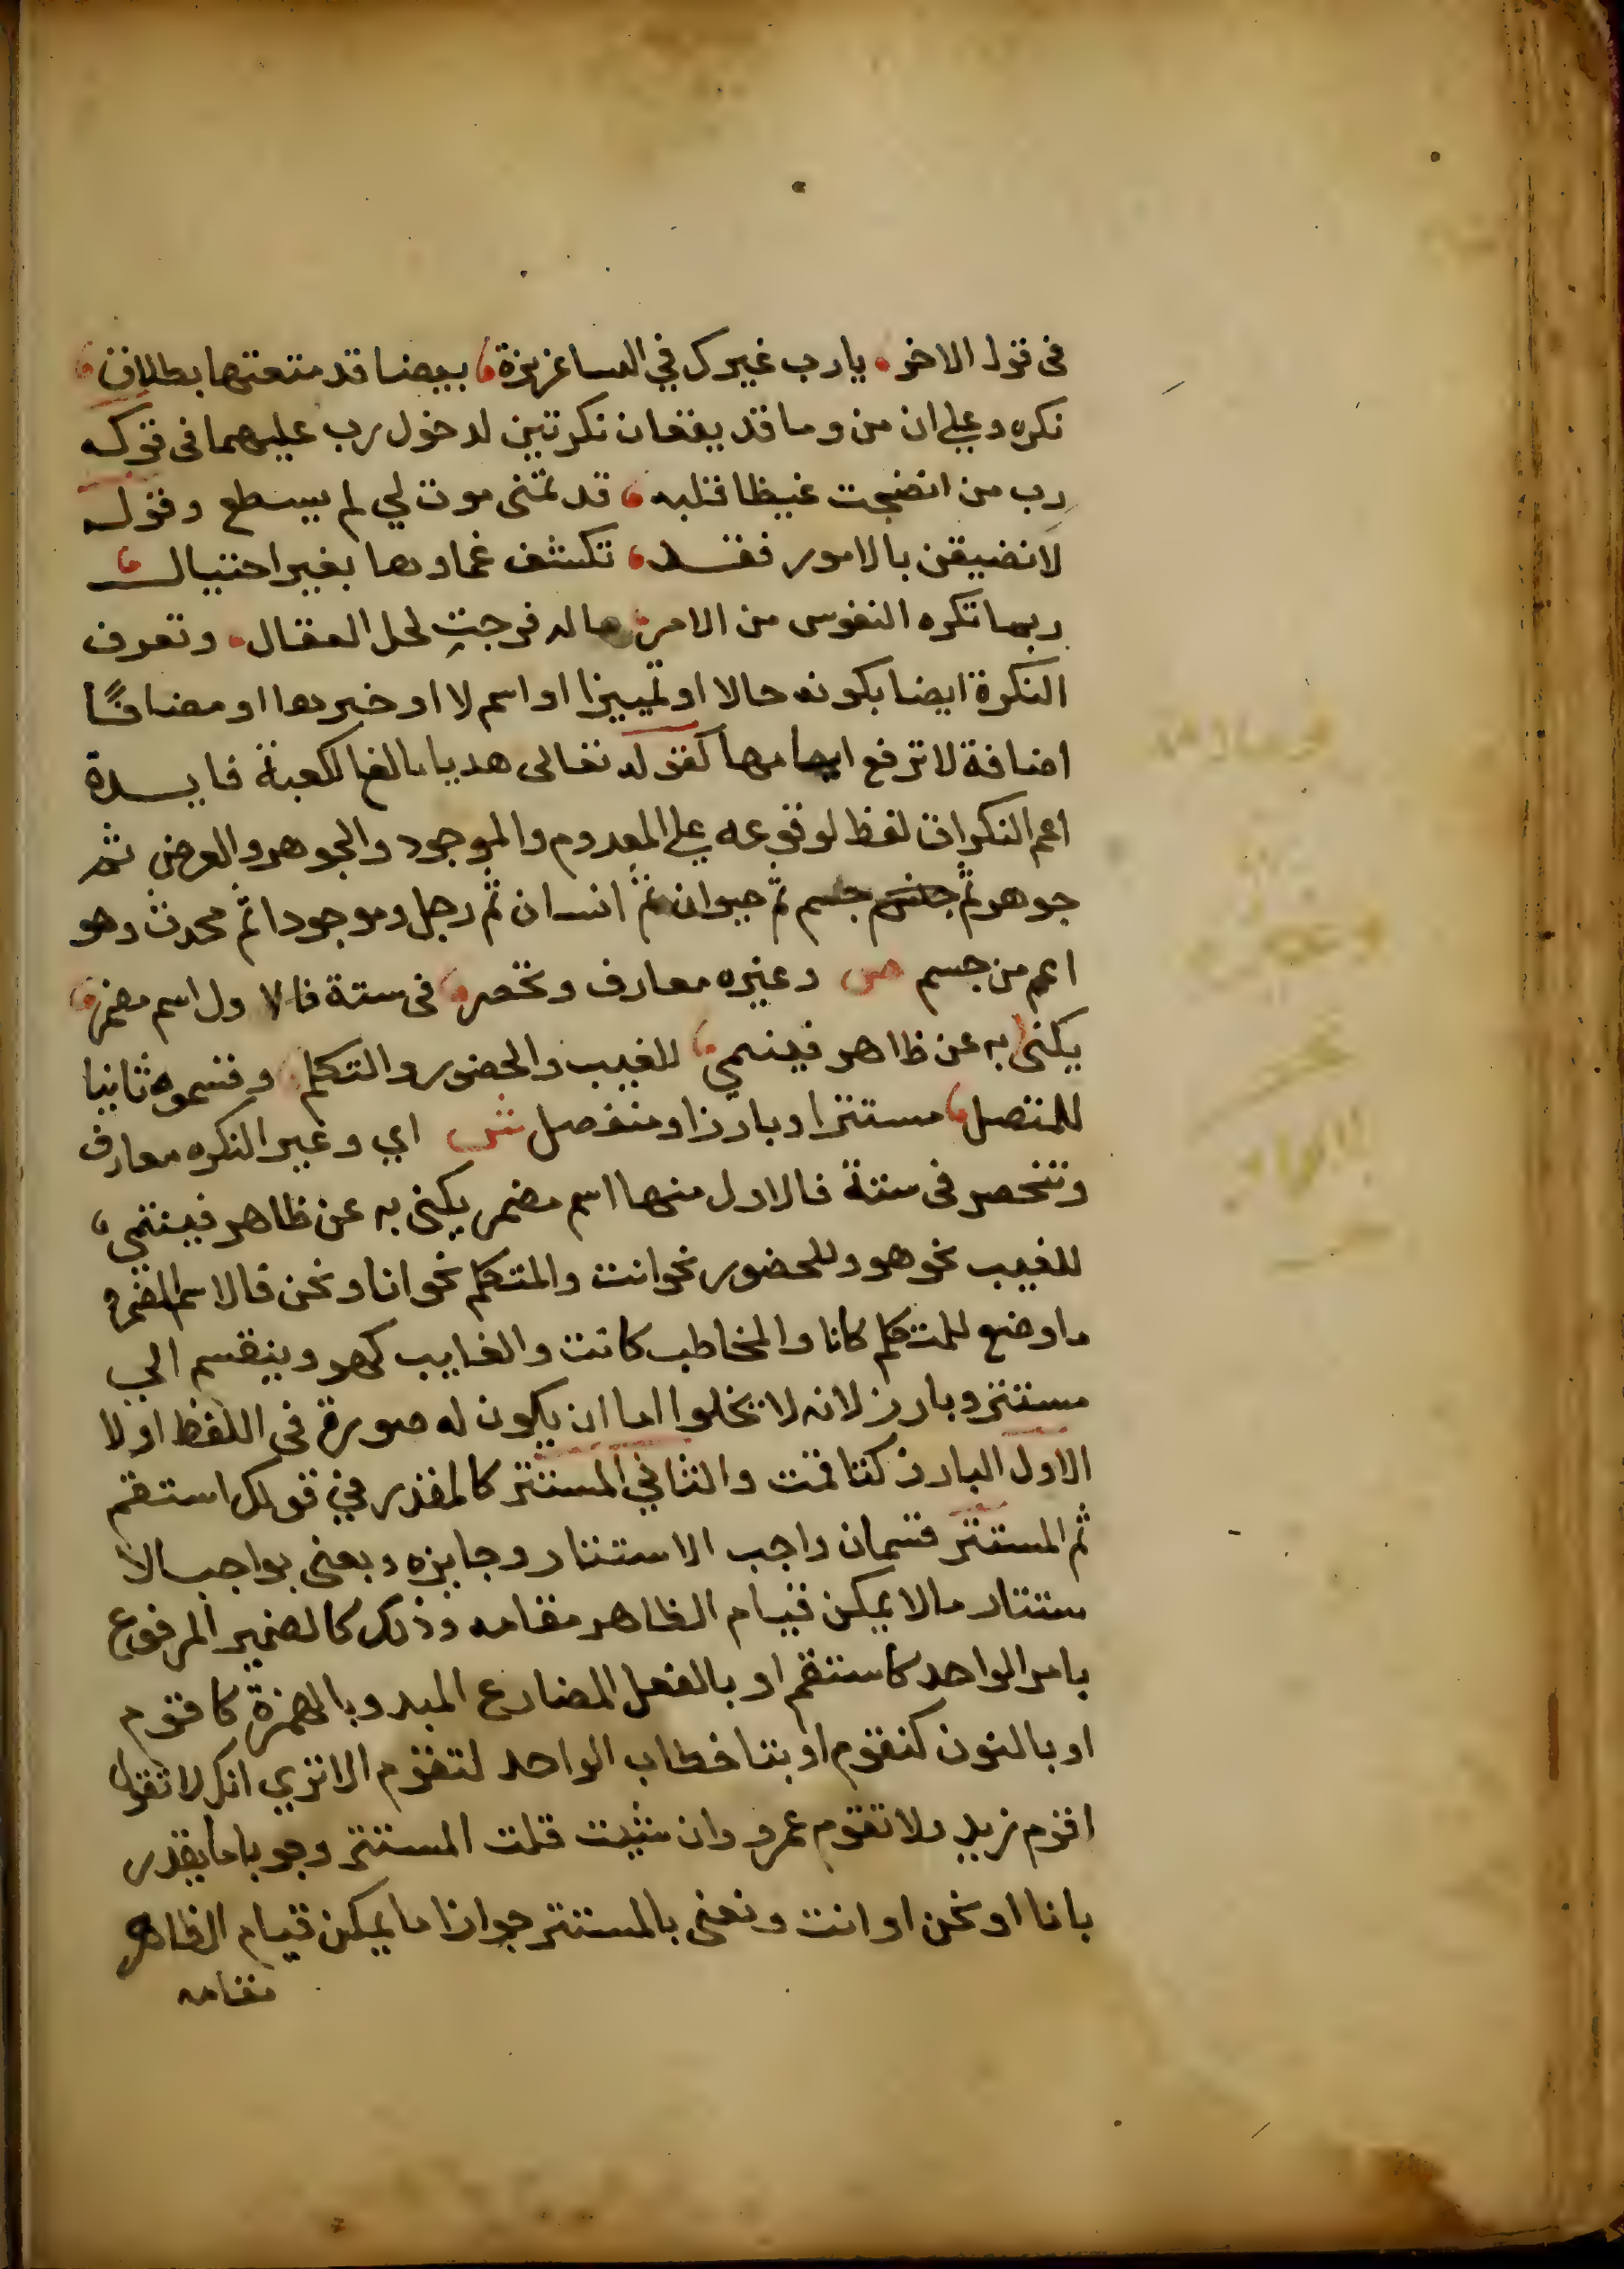 فى قول الاخر يارب غيرك في النسا عزيزة بيضا قد متعتها بطلاق
نكره وعلى ان من وما قد يقعان نكرتين لدخول رب عليهما فى قوله
رب من انضجت غيظا قلبه قد تمنى موت لي لم يسطع وقوله
لا تضيقن بالامور فقد تكشف غماوها بغير احتيال
ربما تكره النفوس من الامر ماله فرجة لحل العقال وتعرف
النكرة ايضا بكونه حالا او تمييزا او اسم لا او خبرها او مضافًا
اضافة لا ترفع ابهامها كقوله تعالى هديا بالغ الكعبة فايدة
اعم النكرات لفظ لوقوعه على المعدوم والموجود والجوهر والعرض ثم
جوهر ثم جسم ثم حيوان ثم انسان ثم رجل وموجودا ثم محدث وهو
اعم من جسم ص وغيره معارف وتحصر فى ستة فالاول اسم مضمر
يكنى به عن ظاهر فينتمي للغيب والحضور والتكلم وقسموه ثانيا
للمتصل مستترا وبارزا ومنفصل ش اي وغير النكره معارف
وتنحصر فى ستة فالاول منها اسم مضمر يكنى به عن ظاهر فينتمي
للغيب نحو هو وللحضور نحو انت والمتكلم نحو انا ونحن فالاسم المضمر
ما وضع للمتكلم كانا والمخاطب كانت والغايب كهو وينقسم الي
مستتر وبارز لانه لا يخلوا اما ان يكون له صورة فى اللفظ او لا
الاول البارز كتا قمت والثاني المستتر كالمقدر في قولك استقم
ثم المستتر قسمان واجب الاستتار وجايزه ويعنى بواجب الا
ستتار مالا يمكن قيام الظاهر مقامه وذلك كالضمير المرفوع
بامر الواحد كاستقم او بالفعل المضارع المبدو بالهمزة كاقوم
او بالنون كنقوم او بتا خطاب الواحد لتقوم الا تري انك لا تقول
اقوم زيد ولا تقوم عمرو وان شيت قلت المستتر وجوبا ما يقدر
بانا او نحن او انت ونعنى بالمستتر جوازا ما يمكن قيام الظاهر
مقامه